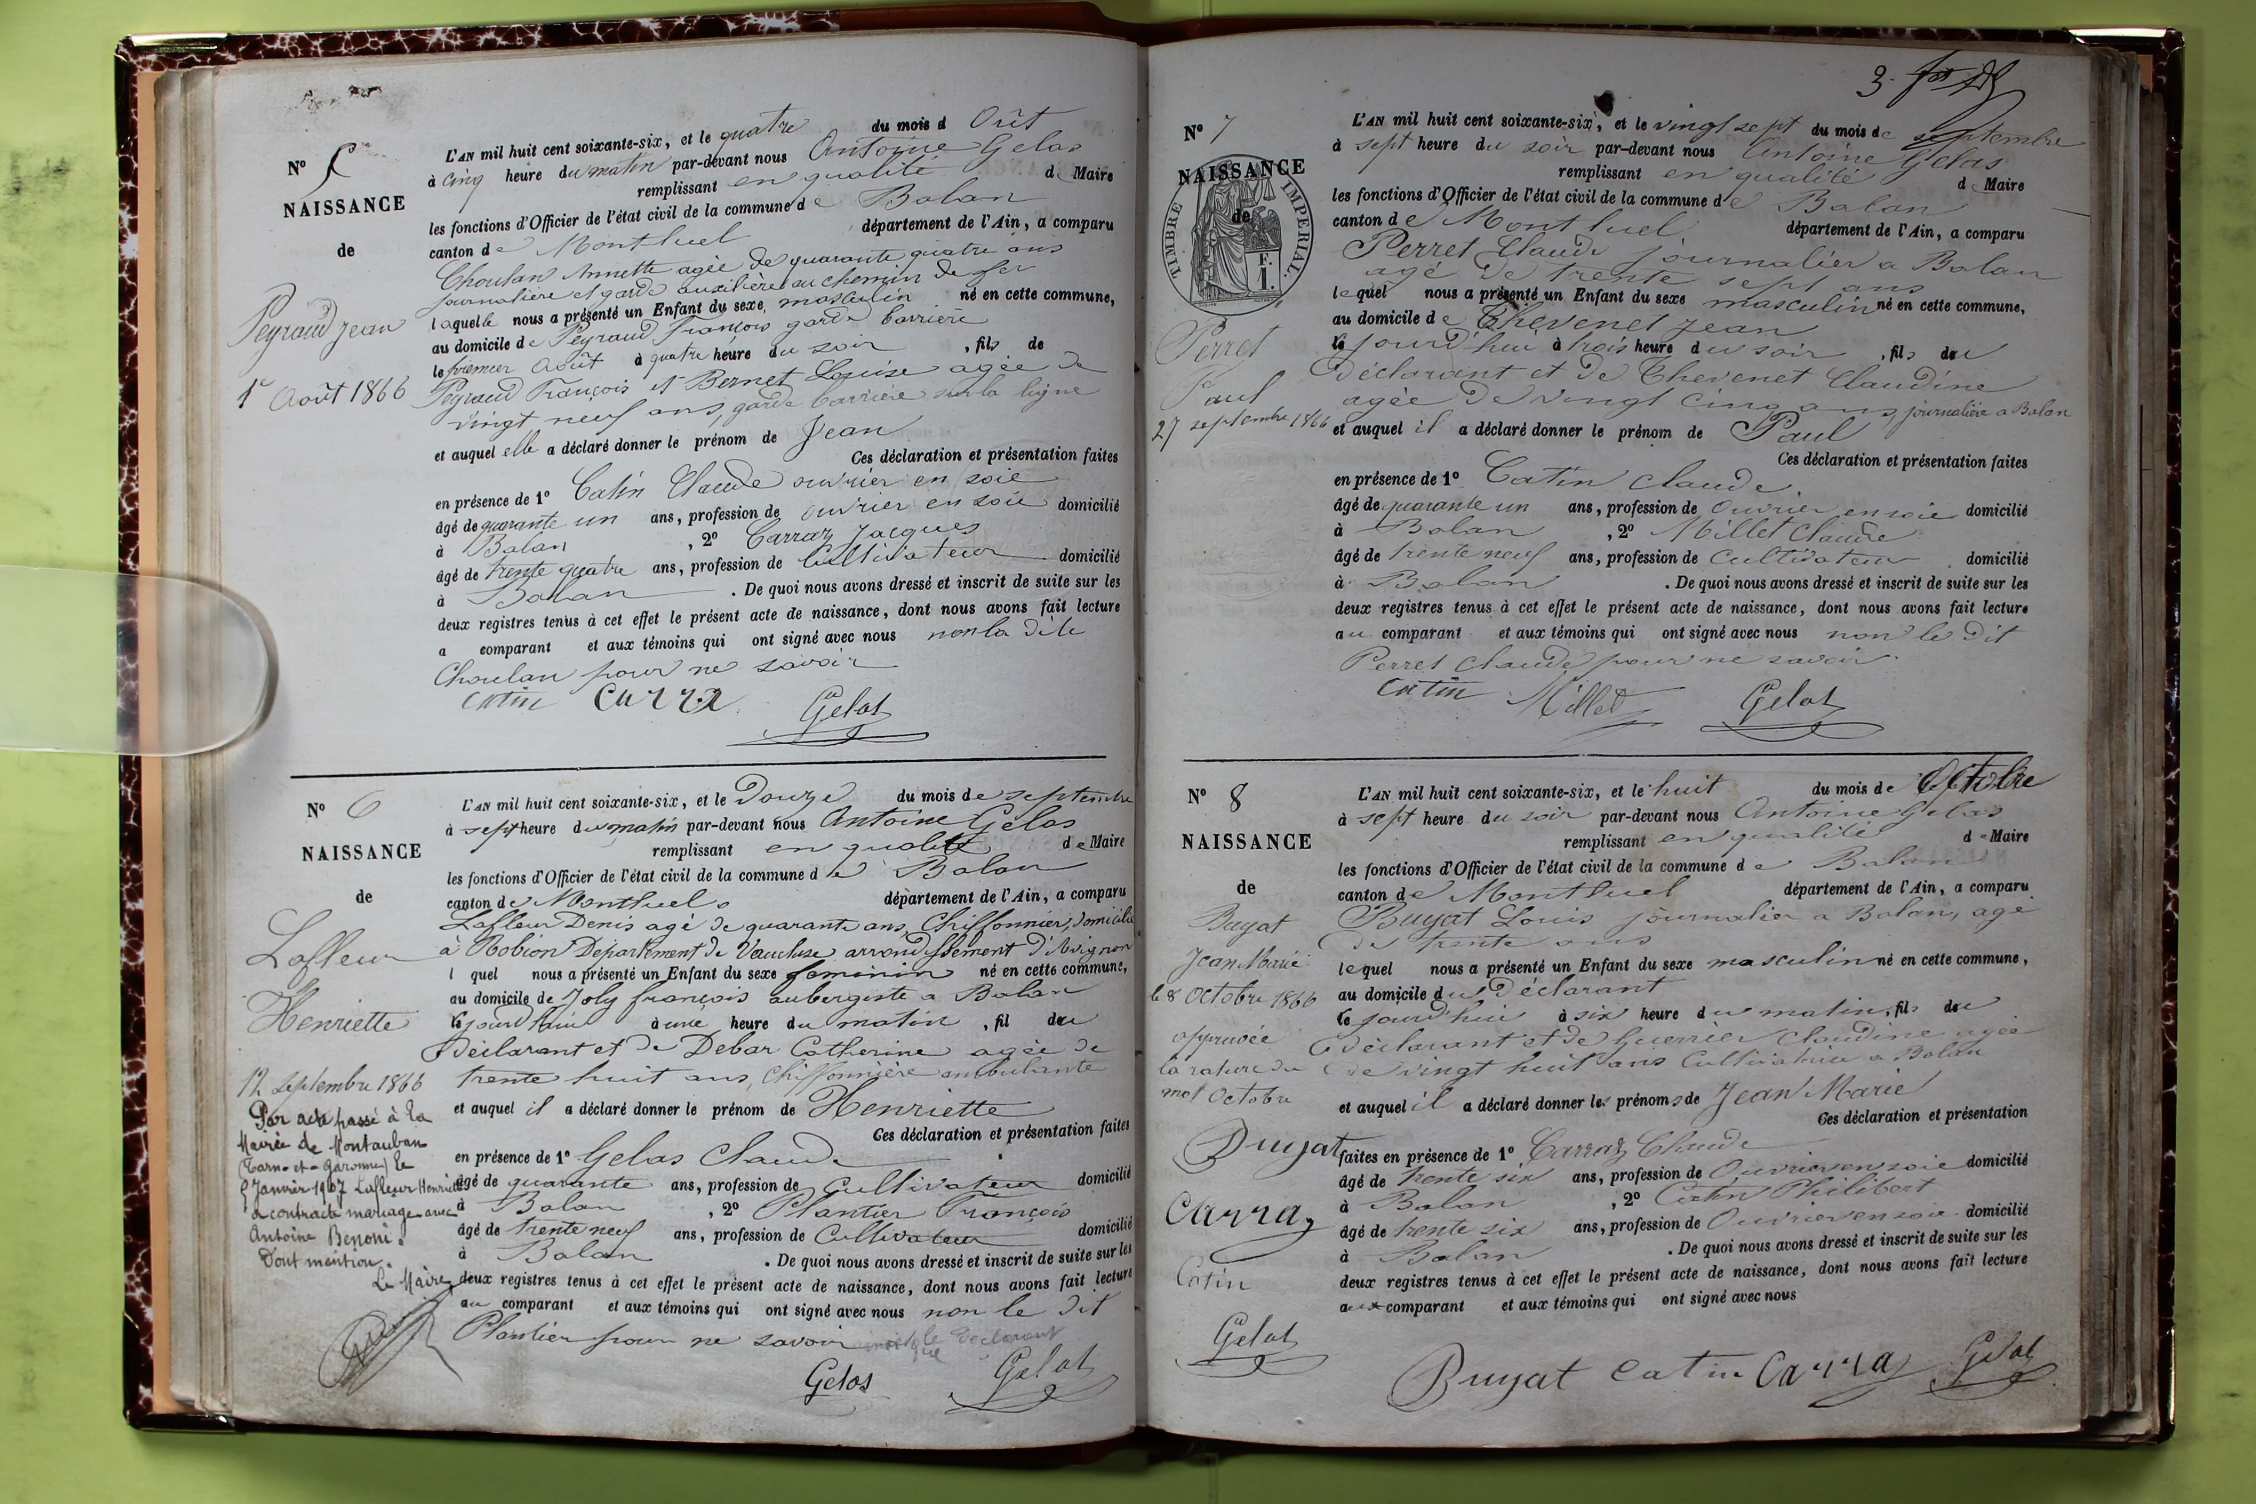 N° 5
NAISSANCE
de
Peyraud Jean
1r Août 1866
L'AN mil huit cent soixante-six, et le quatre du mois d Oût
à cinq heure du matin par-devant nous Antoine Gelas
remplissant en qualité de Maire
les fonctions d'Officier de l'état civil de la commune de Balan
canton de Montluel département de l'Ain, a comparu
Choulan Annette agée de quarante quatre ans
journalière et garde auxilière au chemin de fer
laquelle nous a présenté un Enfant du sexe masculin né en cette commune,
au domicile de Peyraud François garde barrière
le premier Août à quatre heure du soir, fils de
Peyraud François et Bernet Louise agée de
vingt neuf ans, garde barrière sur la ligne
et auquel elle a déclaré donner le prénom de Jean
Ces déclaration et présentation faites
en présence de 1° Catin Claude ouvrier en soie
âgé de quarante un ans, profession de ouvrier en soie domicilié
à Balan, 2° Carraz Jacques
âgé de trente quatre ans, profession de Cultivateur domicilié
à Balan. De quoi nous avons dressé et inscrit de suite sur les
deux registres tenus à cet effet le présent acte de naissance, dont nous avons fait lecture
a comparant et aux témoins qui ont signé avec nous non la dite
Choulan pour ne savoir
Catin Carra Gelas
N° 6
NAISSANCE
de
Lafleur
Henriette
12 septembre 1866
Par acte passé à la
Mairie de Montauban
(Tarn-et-Garonne) le
Janvier 1907 Lafleur Henriette
a contracté mariage avec
Antoine Benoni.
Dont mention.
Le Maire
L'AN mil huit cent soixante-six, et le Douze du mois de septembre
à sept heure du matin par-devant nous Antoine Gelas
remplissant en qualité de Maire
les fonctions d'Officier de l'état civil de la commune de Balan
canton de Montluel département de l'Ain, a comparu
Lafleur Denis agé de quarante ans, Chiffonnier, domicilié
à Robion Département de Vaucluse arrondissement d'Avignon
l quel nous a présenté un Enfant du sexe feminin né en cette commune,
au domicile de Joly françois aubergiste a Balan
le jourd'hui à une heure du matin, fil du
Déclarant et de Debar Catherine agée de
trente huit ans, Chiffonnière ambulante
et auquel il a déclaré donner le prénom de Henriette
Ces déclaration et présentation faites
en présence de 1° Gelas Claude
âgé de quarante ans, profession de Cultivateur domicilié
à Balan, 2° Plantier François
âgé de trente neuf ans, profession de Cultivateur domicilié
à Balan. De quoi nous avons dressé et inscrit de suite sur les
deux registres tenus à cet effet le présent acte de naissance, dont nous avons fait lecture
au comparant et aux témoins qui ont signé avec nous non le dit
Plantier pour ne savoir le Déclarant
Gelas Gelas
3.
N° 7
NAISSANCE
de
TIMBRE IMPERIAL.
F.
1.
Perret
Paul
27 septembre 1866
L'AN mil huit cent soixante-six, et le vingt sept du mois de septembre
à sept heure du soir par-devant nous Antoine Gelas
remplissant en qualité de Maire
les fonctions d'Officier de l'état civil de la commune de Balan
canton de Montluel département de l'Ain, a comparu
Perret Claude journalier a Balan
agé de trente sept ans
lequel nous a présenté un Enfant du sexe masculin né en cette commune,
au domicile de Thevenet Jean
le jourd'hui à trois heure du soir, fils du
déclarant et de Thevenet Claudine
agée de vingt cinq ans, journalière a Balan
et auquel il a déclaré donner le prénom de Paul
Ces déclaration et présentation faites
en présence de 1° Catin Claude
âgé de quarante un ans, profession de Ouvrier en soie domicilié
à Balan, 2° Millet Claude
âgé de trente neuf ans, profession de Cultivateur domicilié
à Balan. De quoi nous avons dressé et inscrit de suite sur les
deux registres tenus à cet effet le présent acte de naissance, dont nous avons fait lecture
au comparant et aux témoins qui ont signé avec nous non le dit
Perret Claude pour ne savoir.
Catin Millet Gelas
N° 8
NAISSANCE
de
Buyat
Jean Marie
le 8 Octobre 1866
approuvée
la rature du
mot Octobre
Buyat
Carraz
Catin
Gelas
L'AN mil huit cent soixante-six, et le huit du mois de Octobre
à sept heure du soir par-devant nous Antoine Gelas
remplissant en qualité de Maire
les fonctions d'Officier de l'état civil de la commune de Balan
canton de Montluel département de l'Ain, a comparu
Buyat Louis journalier a Balan, agé
de trente ans
lequel nous a présenté un Enfant du sexe masculin né en cette commune,
au domicile du Déclarant
le jourd'hui à six heure du matin, fils du
déclarant et de Guerrier Claudine agée
de vingt huit ans Cultivatrice a Balan
et auquel il a déclaré donner les prénoms de Jean Marie
Ces déclaration et présentation
faites en présence de 1° Carraz Claude
âgé de trente six ans, profession de Ouvrier en soie domicilié
à Balan, 2° Catin Philibert
âgé de trente six ans, profession de Ouvrier en soie domicilié
à Balan. De quoi nous avons dressé et inscrit de suite sur les
deux registres tenus à cet effet le présent acte de naissance, dont nous avons fait lecture
aux comparant et aux témoins qui ont signé avec nous
Buyat Catin Carra Gelas